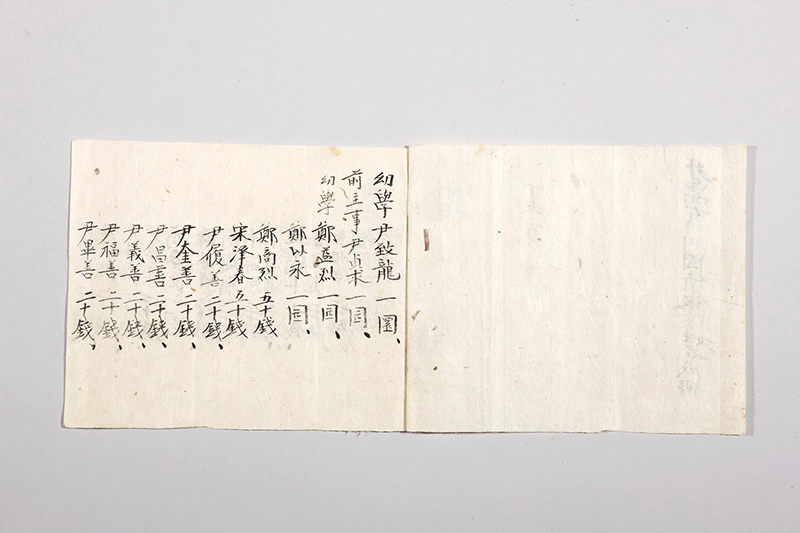 幼學 尹致龍 一圜、
前主事 尹貞求 一圓、
幼學 鄭益烈 一圓、
鄭以永 一圓、
鄭高烈 五十錢、
宋澤春 五十錢
尹履善 二十錢、
尹奎善 二十錢、
尹昌善 二十錢、
尹義善 二十錢、
尹福善 二十錢、
尹畢善 二十錢、